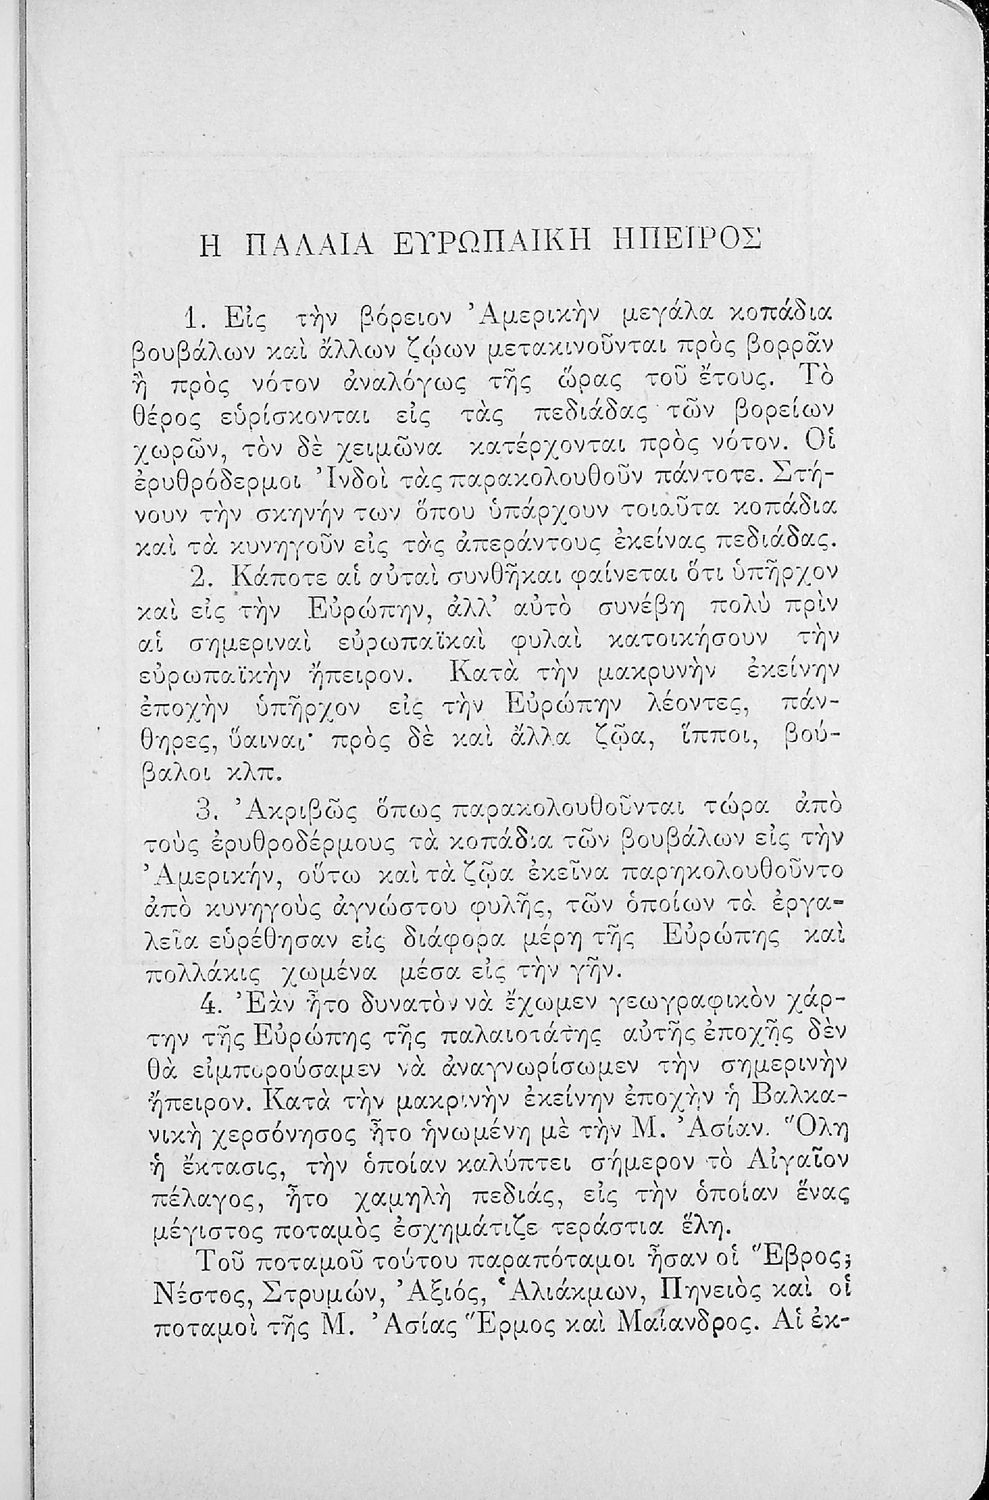 Η ΠΑΛΑΙΑ ΕΥΡΩΠΑΙΚΗ ΗΠΕΙΡΟΣ
1. Εἰς τὴν βόρειον Ἀμερικὴν μεγάλα κοπάδια
βουβάλων καὶ ἄλλων ζῴων μετακινοῦνται πρὸς βορρᾶν
ἢ πρὸς νότον ἀναλόγως τῆς ὥρας τοῦ ἔτους. Τὸ
θέρος εὑρίσκονται εἰς τὰς πεδιάδας τῶν βορείων
χωρῶν, τὸν δὲ χειμῶνα κατέρχονται πρὸς νότον. Οἱ
ἐρυθρόδερμοι Ἰνδοὶ τὰς παρακολουθοῦν πάντοτε. Στή-
νουν τὴν σκηνήν των ὅπου ὑπάρχουν τοιαῦτα κοπάδια
καὶ τὰ κυνηγοῦν εἰς τὰς ἀπεράντους ἐκείνας πεδιάδας.
2. Κάποτε αἱ αὐταὶ συνθῆκαι φαίνεται ὅτι ὑπῆρχον
καὶ εἰς τὴν Εὐρώπην, ἀλλ’ αὐτὸ συνέβη πολὺ πρὶν
αἱ σημεριναὶ εὐρωπαϊκαὶ φυλαὶ κατοικήσουν τὴν
εὐρωπαϊκὴν ἤπειρον. Κατὰ τὴν μακρυνὴν ἐκείνην
ἐποχὴν ὑπῆρχον εἰς τὴν Εὐρώπην λέοντες, πάν-
θηρες, ὕαιναι· πρὸς δὲ καὶ ἄλλα ζῷα, ἵπποι, βού-
βαλοι κλπ.
3. Ἀκριβῶς ὅπως παρακολουθοῦνται τώρα ἀπὸ
τοὺς ἐρυθροδέρμους τὰ κοπάδια τῶν βουβάλων εἰς τὴν
Ἀμερικήν, οὕτω καὶ τὰ ζῷα ἐκεῖνα παρηκολουθοῦντο
ἀπὸ κυνηγοὺς ἀγνώστου φυλῆς, τῶν ὁποίων τὰ ἐργα-
λεῖα εὑρέθησαν εἰς διάφορα μέρη τῆς Εὐρώπης καὶ
πολλάκις χωμένα μέσα εἰς τὴν γῆν.
4. Ἐὰν ἦτο δυνατὸν νὰ ἔχωμεν γεωγραφικὸν χάρ-
την τῆς Εὐρώπης τῆς παλαιοτάτης αὐτῆς ἐποχῆς δὲν
θὰ εἰμπορούσαμεν νὰ ἀναγνωρίσωμεν τὴν σημερινὴν
ἤπειρον. Κατὰ τὴν μακρινὴν ἐκείνην ἐποχὴν ἡ Βαλκα-
νικὴ χερσόνησος ἦτο ἡνωμένη μὲ τὴν Μ. Ἀσίαν. Ὅλη
ἡ ἔκτασις, τὴν ὁποίαν καλύπτει σήμερον τὸ Αἰγαῖον
πέλαγος, ἦτο χαμηλὴ πεδιάς, εἰς τὴν ὁποίαν ἕνας
μέγιστος ποταμὸς ἐσχημάτιζε τεράστια ἕλη.
Τοῦ ποταμοῦ τούτου παραπόταμοι ἦσαν οἱ Ἕβρος,
Νέστος, Στρυμών, Ἀξιός, Ἁλιάκμων, Πηνειὸς καὶ οἱ
ποταμοὶ τῆς Μ. Ἀσίας Ἕρμος καὶ Μαίανδρος. Αἱ ἐκ-